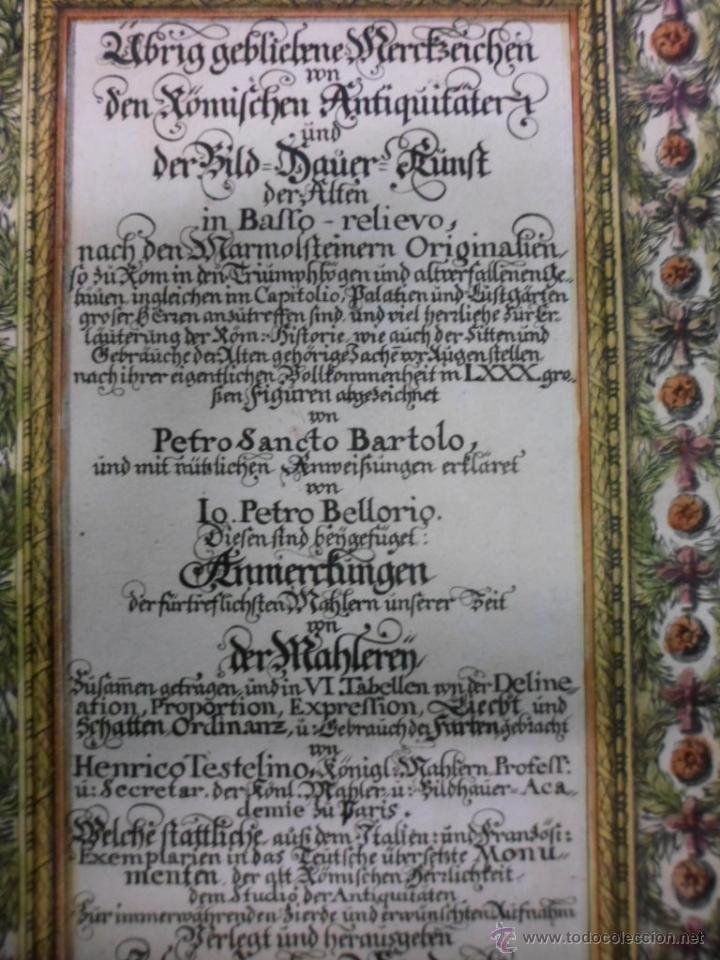 Übrig gebliebene Merckzeichen
von
den Römischen Antiquitäten
und
der Bild-Hauer-Kunst
der Alten
in Basso-relievo,
nach den Marmolsteinern Originalien,
so zu Rom in den Triumphbögen und altverfallenen Ge-
bäuen, ingleichen im Capitolio, Palatien und Lustgärten
groser Herren anzutreffen sind, und viel herzliche zur Er-
läuterung der Röm: Historie, wie auch der Sitten und
Gebräuche der Alten gehörige Sache vor Augen stellen
nach ihrer eigentlichen Vollkommenheit in LXXX. gro-
ßen Figuren abgezeichnet
von
Petro Sancto Bartolo,
und mit nützlichen Anweißungen erkläret
von
Io. Petro Bellorio.
Diesen sind beygefüget:
Anmerckungen
der fürtreflichsten Mahlern unserer Zeit
von
der Mahlereÿ,
Zusam̄en getragen, und in VI. Tabellen von der Deline-
ation, Proportion, Expression, Liecht und
Schatten Ordinanz, u: Gebrauch der Farben gebracht
von
Henrico Testelino, Königl: Mahlern Profess:
u: Secretar. der Königl. Mahler u: Bildhauer-Aca-
demie zu Paris.
Welche stattliche, auß dem Italien: und Französi:
Exemplarien in das Teutsche übersetzte Monu-
menten, der alt Römischen Herzlichkeit,
dem Studio der Antiquitäten
Zur immerwährenden Zierde und erwünschten Aufnahm
Verlegt und herausgeben
© www.todocoleccion.net